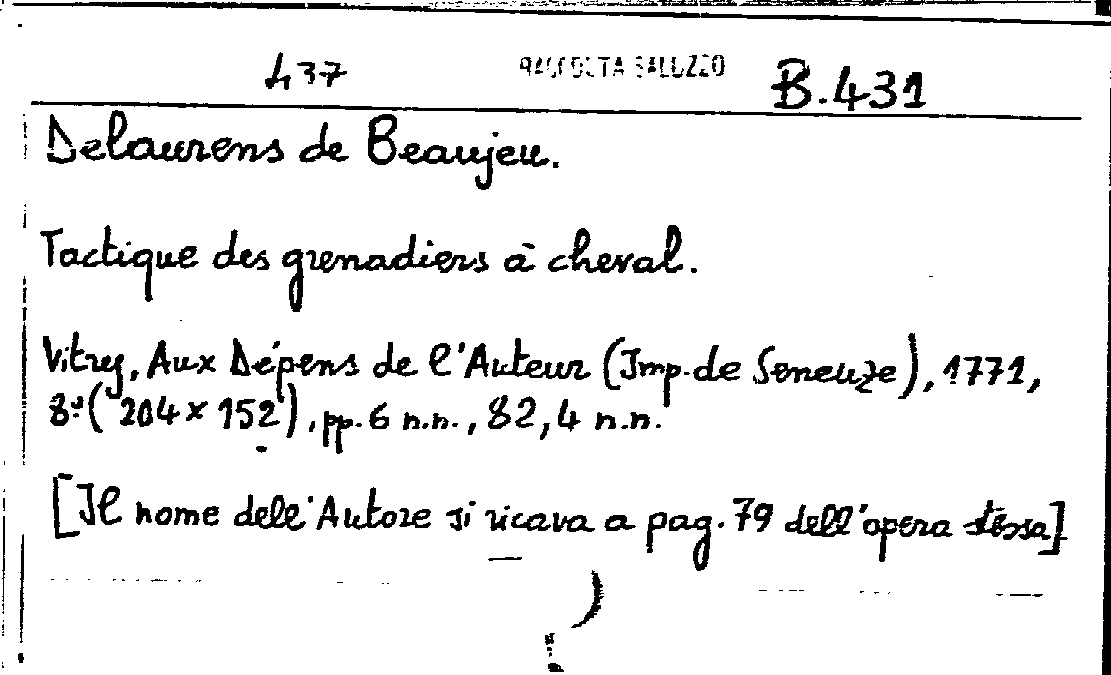 437 RACCOLTA SALUZZO B.431
Delaurens de Beaujeu.
Tactique des grenadiers à cheval.
Vitry, Aux Dépens de l'Auteur (Imp. de Seneuze), 1771,
8º (204 x 152), pp. 6 n.n., 82, 4 n.n.
[Il nome dell'Autore si ricava a pag. 79 dell'opera stessa]